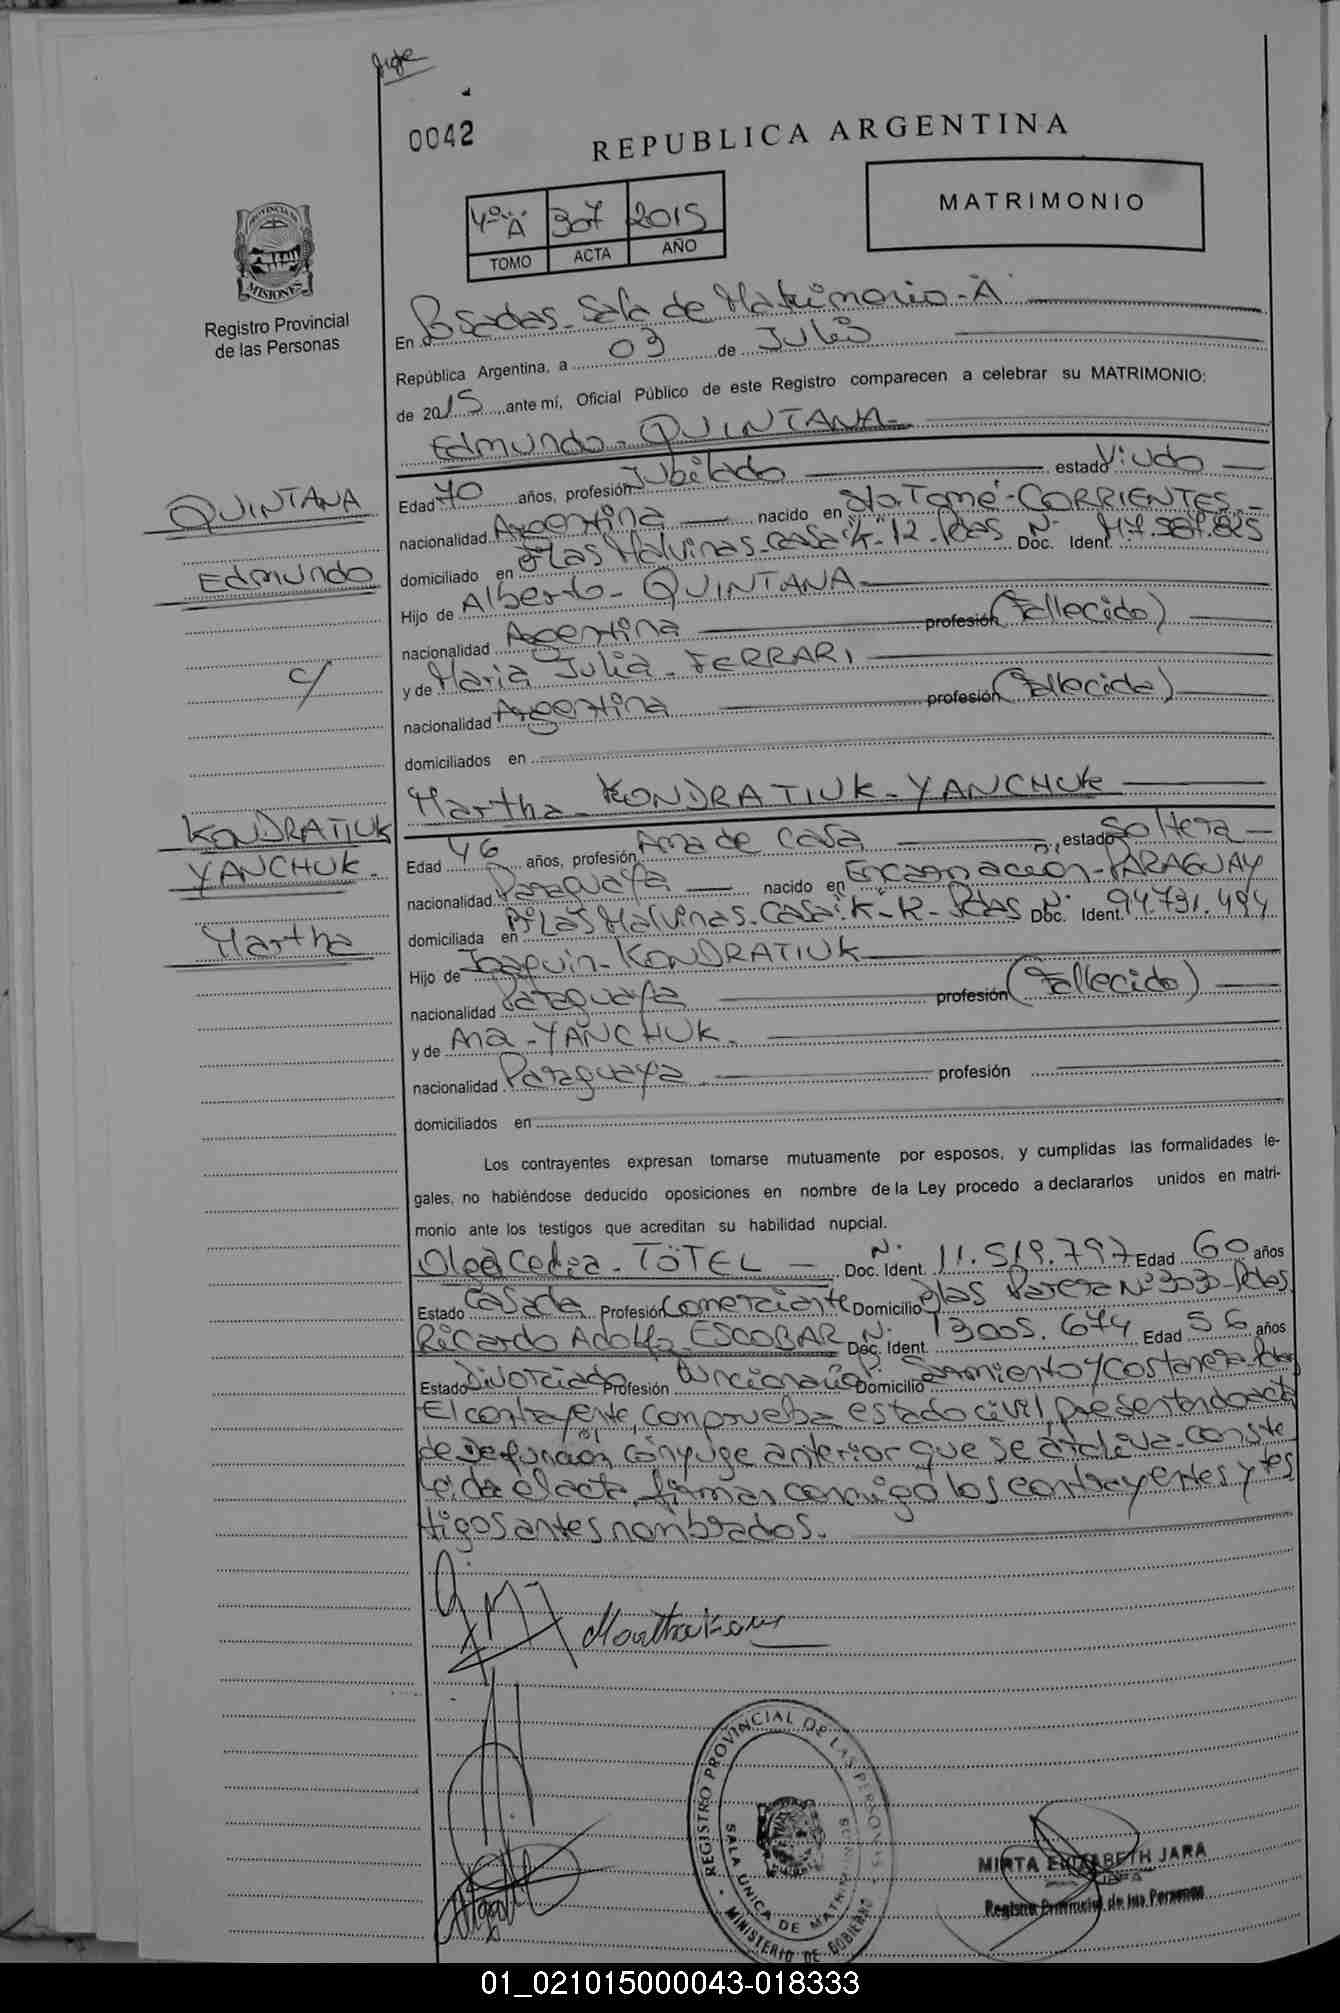 0042
REPUBLICA ARGENTINA
4º "A" 307 2015
TOMO ACTA AÑO
MATRIMONIO
PROVINCIA DE
MISIONES
Registro Provincial
de las Personas
En Posadas-Sala de Matrimonio-A
República Argentina, a 03 de Julio
de 2015, ante mí, Oficial Público de este Registro comparecen a celebrar su MATRIMONIO:
Edmundo-QUINTANA-
QUINTANA
Edmundo
c/
KONDRATIUK
YANCHUK.
Martha
Edad 70 años, profesión Jubilado estado Viudo
nacionalidad Argentina nacido en Sto. Tomé-CORRIENTES-
domiciliado en Las Malvinas-Casa: K-12-Pdas Doc. Ident. Nº
Hijo de Alberto-QUINTANA
nacionalidad Argentina profesión (Fallecido)
y de Maria Julia-FERRARI
nacionalidad Argentina profesión (Fallecida)
domiciliados en
Martha-KONDRATIUK-YANCHUK
Edad 46 años, profesión Ama de Casa, estado Soltera
nacionalidad Paraguaya nacido en Encarnación-PARAGUAY
domiciliada en Las Malvinas-Casa: K-12-Pdas Doc. Ident. Nº 94.731.494
Hijo de Joaquin-KONDRATIUK
nacionalidad Paraguaya profesión (Fallecido)
y de Ana-YANCHUK.
nacionalidad Paraguaya profesión
domiciliados en
Los contrayentes expresan tomarse mutuamente por esposos, y cumplidas las formalidades le-
gales, no habiéndose deducido oposiciones en nombre de la Ley procedo a declararlos unidos en matri-
monio ante los testigos que acreditan su habilidad nupcial.
Olga Cedia-TÖTEL Doc. Ident. Nº 11.519.797 Edad 60 años
Estado Casada Profesión Comerciante Domicilio Nº 3030-Pdas.
Ricardo Adolfo ESCOBAR Doc. Ident. Nº 13005.674 Edad 56 años
Estado Divorciado Profesión Funcionario Domicilio Sarmiento y Costanera-Pdas
El contrayente, comprueba estado civil, presentando acta
de defunción cónyuge anterior que se archiva-conste
Leida el acta, firman conmigo los contrayentes y tes
tigos antes nombrados.
REGISTRO PROVINCIAL DE LAS PERSONAS
SALA UNICA DE MATRIMONIO
MINISTERIO DE GOBIERNO
MIRTA ELIZABETH JARA
JEFA
Registro Provincial de las Personas
01_021015000043-018333